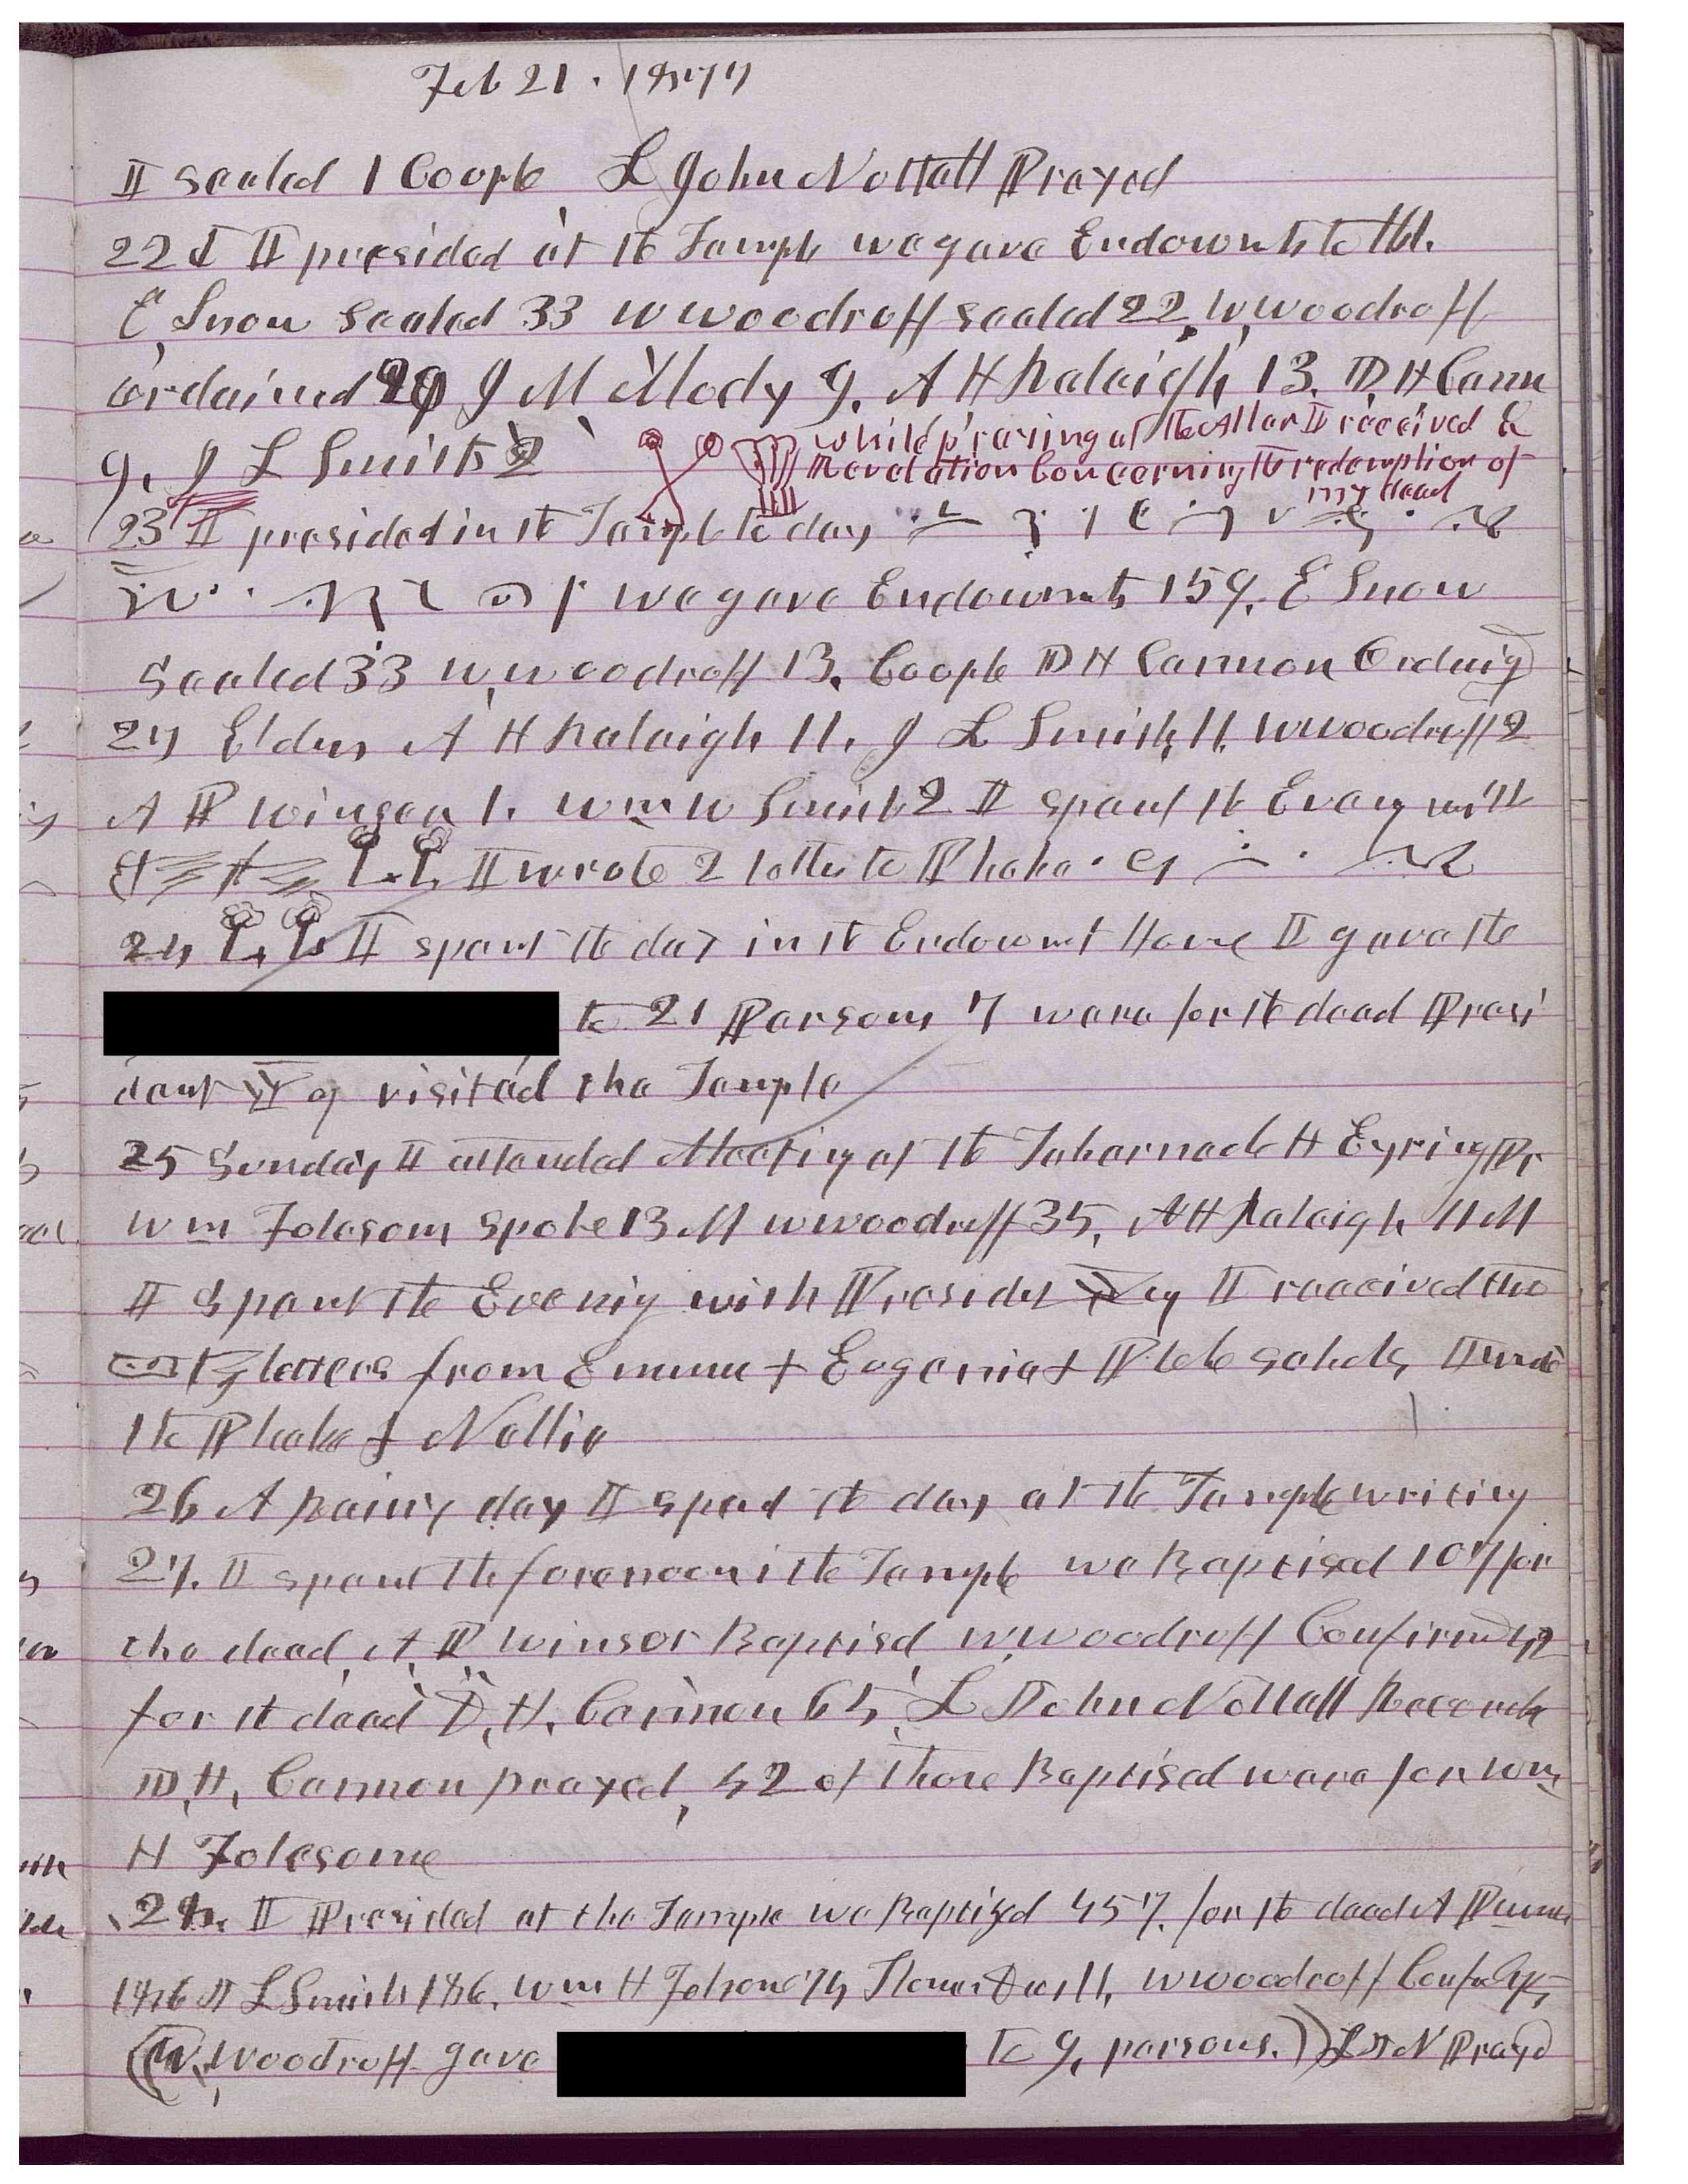 Feb 21. 1877
I sealed 1 Coople L John Nuttall Prayed
22d I presided at the Temple we gave Endowmts to
E Snow Sealed 33 W Woodruff sealed 22, W, Woodruff
ordained 20 J M Moody 9, A H Raleigh 13. D, H Cann
9, J L Smith 2
while praying at the Altar I received a
Revelation Concerning the redemption of
my dead
23 I presided in the Temple to day
we gave Endowmts 159. E Snow
Sealed 33 W, Woodruff 13. Coople D H Cannon Ordnig
24 Elders A H Raleigh 11. J L Smith 11. W Woodruff 2
A P Winsor 1. Wm W Smith 2 I spent the Eveng with
I wrote 2 letters to Phebe
24 I spent the day in the Endowmt House I gave the
to 21 Persons 7 were for the dead Presi
dent Y g visited the Temple
25 Sunday I attended Meeting at the Tabernacle H Eyring Pr
Wm Folesom spoke 13 M W Woodruff 35, A H Raleigh 11 M
I Spent the Evenig with Presidet I received
letters from Emma & Eugenia &
1 to Phebe & Nellie
26 A Rainy day I spent the day at the Temple writing
27. I spent the forenoon i the Temple we Baptised 107 for
the dead, A, P Winsor Baptisd W, Woodroff Confirmd 42
for the dead D, H, Cannon 65, L John Nuttall Records
D, H, Cannon prayed, 42 of those Baptised were for Wm
H Folesome
I Presided at the Temple we Baptized 457. for the dead A P
186 L Smith 186. Wm H W Woodroff
(W, Woodroff gave to 9, persons.) L J N Prayd